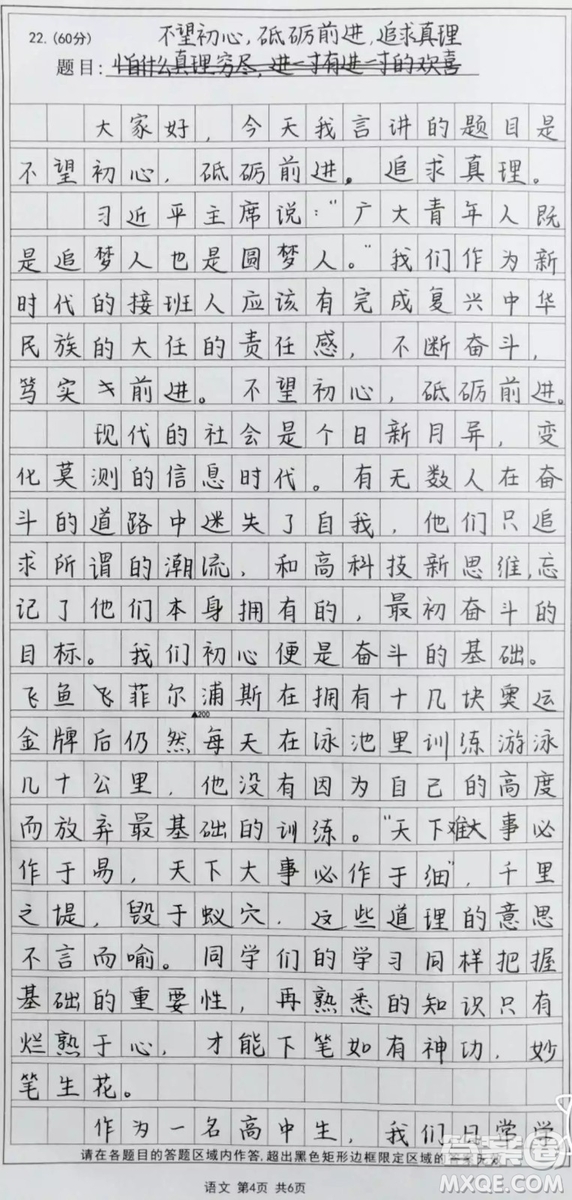 22. (60分) 不望初心,砥砺前进,追求真理
题目: 怕什么真理穷尽,进一寸有进一寸的欢喜
大家好,今天我言讲的题目是
不望初心,砥砺前进。追求真理。
习近平主席说:"广大青年人既
是追梦人也是圆梦人。"我们作为新
时代的接班人应该有完成复兴中华
民族的大任的责任感,不断奋斗,
笃实前进。不望初心,砥砺前进。
现代的社会是个日新月异,变
化莫测的信息时代。有无数人在奋
斗的道路中迷失了自我,他们只追
求所谓的潮流,和高科技新思维,忘
记了他们本身拥有的,最初奋斗的
目标。我们初心便是奋斗的基础。
飞鱼飞菲尔浦斯在拥有十几块奥运
▲200
金牌后仍然每天在泳池里训练游泳
几十公里,他没有因为自己的高度
而放弃最基础的训练。"天下难大事必
作于易,天下大事必作于细",千里
之提,毁于蚁穴.这些道理的意思
不言而喻。同学们的学习同样把握
基础的重要性,再熟悉的知识只有
烂熟于心,才能下笔如有神功,妙
笔生花。
作为一名高中生,我们日常学
请在各题目的答题区域内作答,超出黑色矩形边框限定区域的答案无效
语文 第4页 共6页
答案圈
MXQE.COM